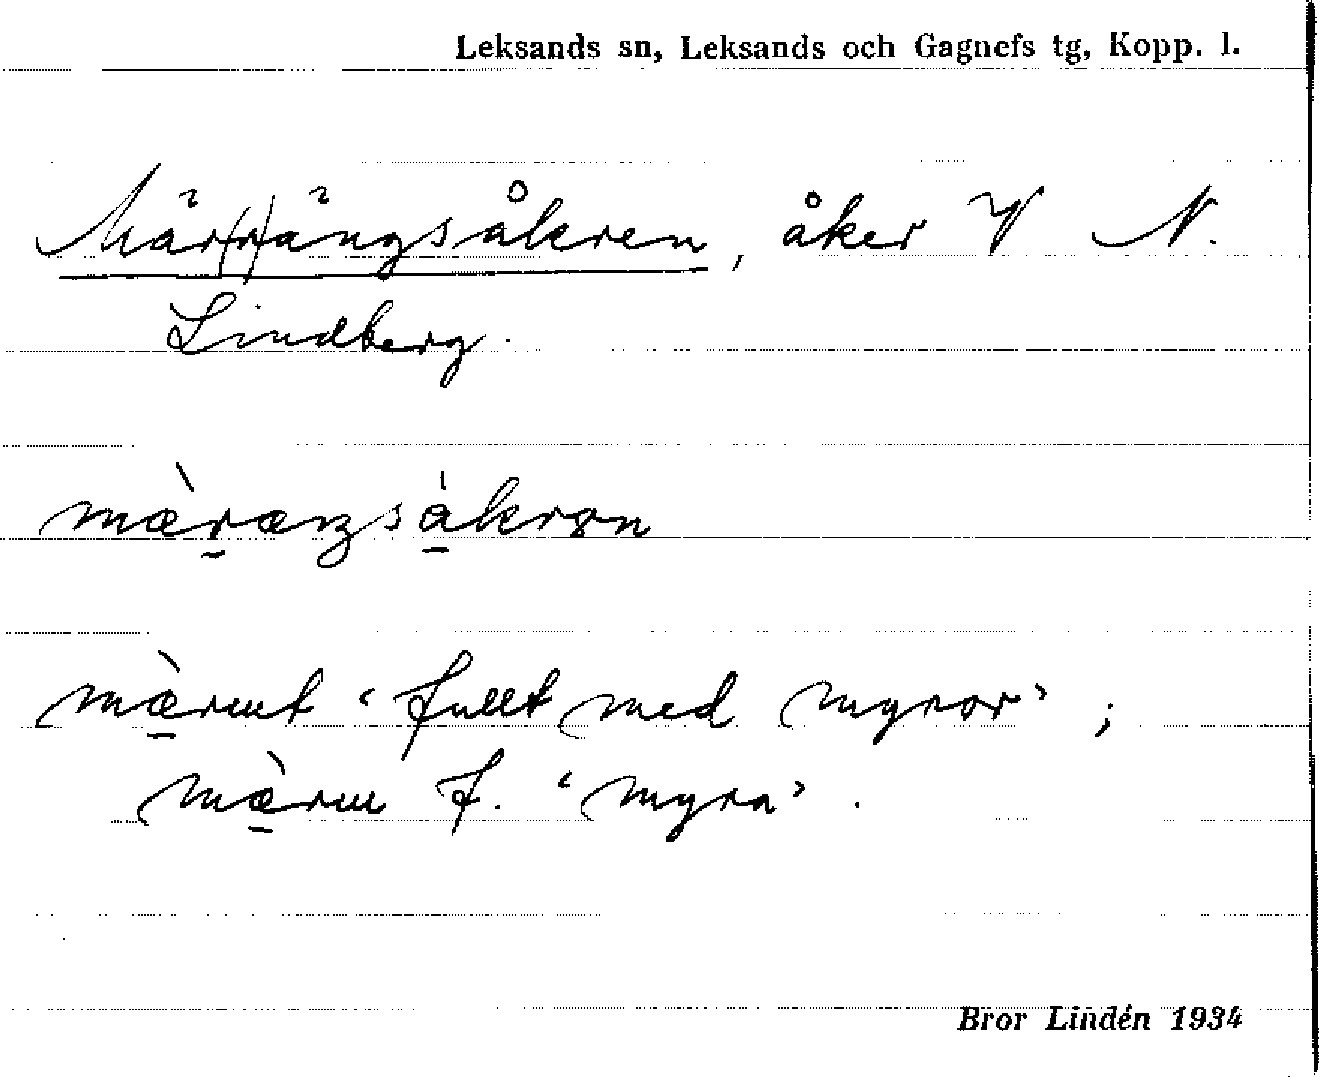 Leksands sn, Leksands och Gagnefs tg, Kopp. l.
Mär(r)ängsåkren, åker V N.
Lindberg.
mæ̀ræŋsákrøn
mæ̀rut ‘fullt med myror’;
mæ̀ru f. ‘myra’.
Bror Lindén 1934